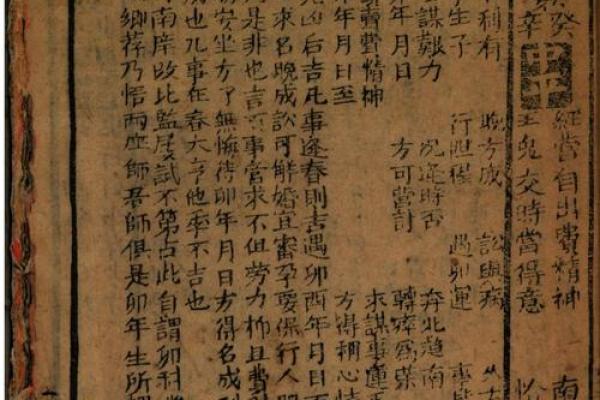 癸 經營自出費精神 南
辛 王兔交時當得意 恰
利有 晚方成 訟與病
生子 行阻程 遇卯運 事
謀難力 況逢時否 奔北趨南
年月日 方可當討 轉瘁為榮
費精神 求謀事運
年月日至 方得稱心情
凶后吉凡事逢春則吉遇卯酉年月日
求名晚成訟可解婚宜審孕要保行人
是非也吉可事營求不但勞力柿且費
安坐方了無悔待卯年月日方得名成
成也凡事在春大亨他季不吉也
南庠改比監屢試不第占此自謂卯科
卿荐乃悟兩座師君師俱是卯年生所